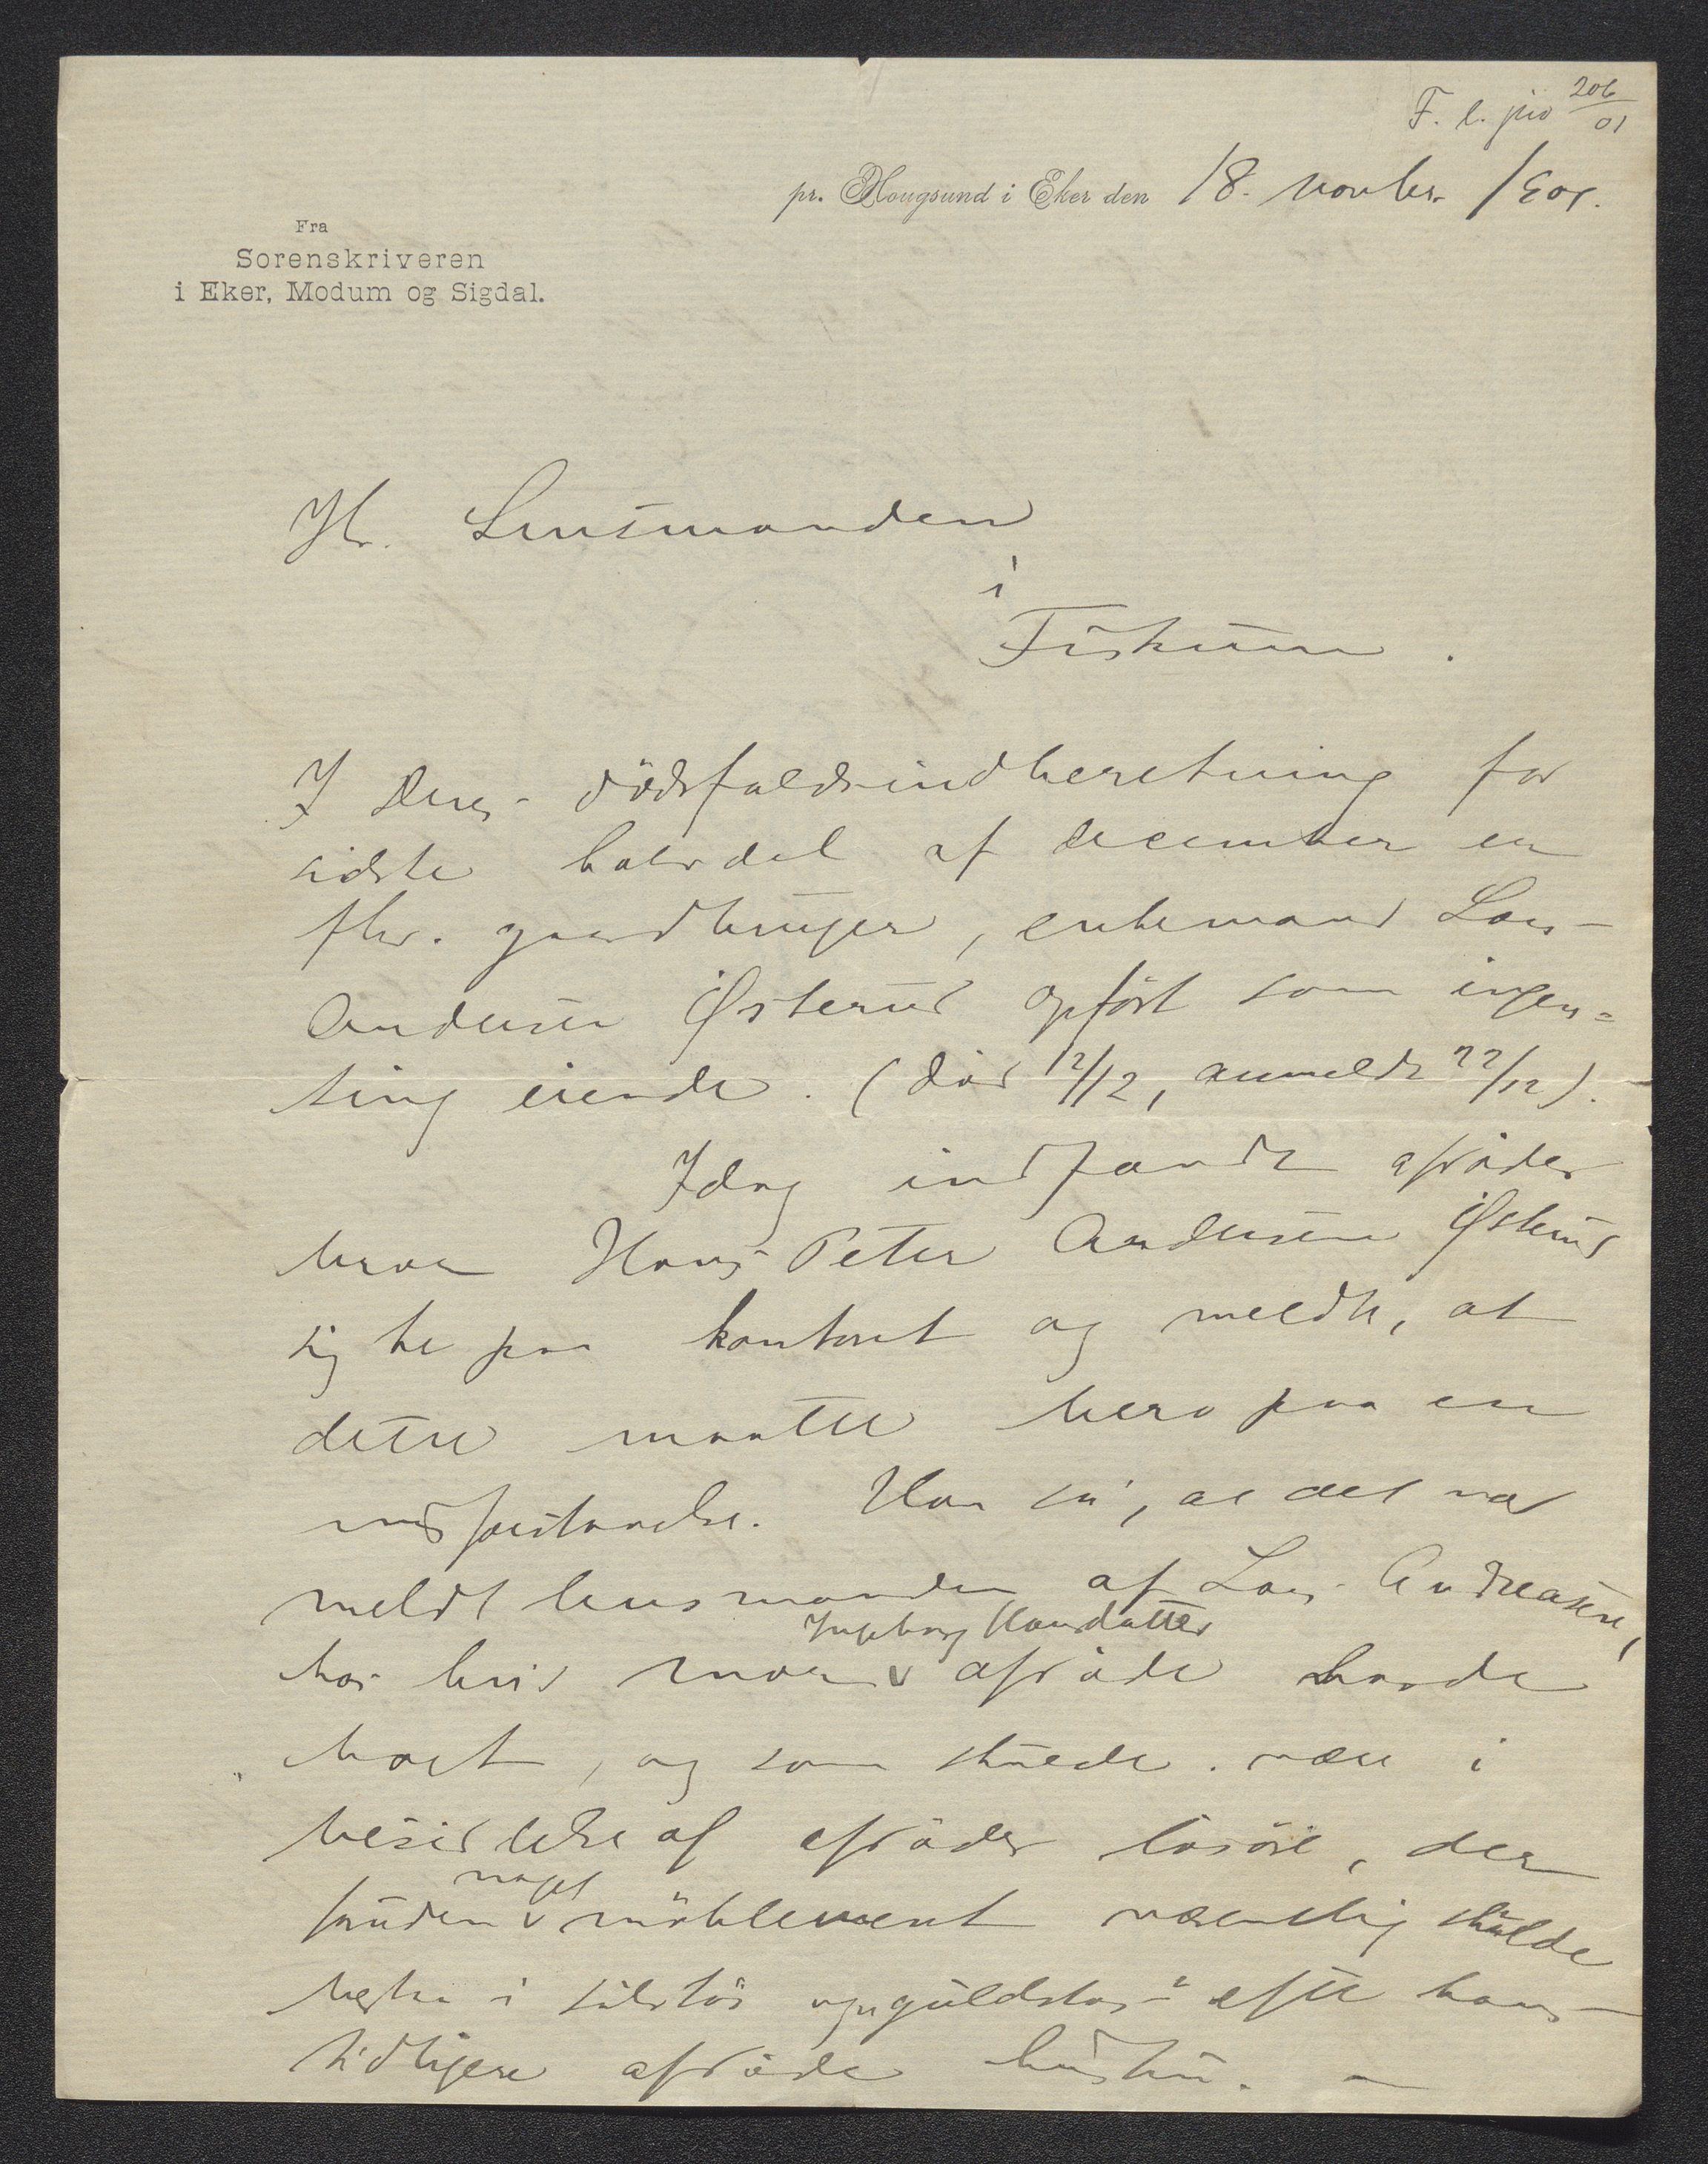 F. l. jno 206/01
pr. Hougsund i Eker den 18. novbr. 1901.
Fra
Sorenskriveren
i Eker, Modum og Sigdal.
Hr. Lensmanden
i
Fiskum.
I Deres dödsfaldsindberetning for
sidste halvdel af december er
fhv. gaardbruger, enkemand Lars
Andersen Østerud opfört som ingen=
ting eiende. (död 12/12, anmeldt 22/12).
Idag indfandt afdödes
bror Hans Peter Andersen Østerud
sig her paa kontoret og meldte, at
dette maatte bero paa en
misforstaaelse. Han sa', at det var
meldt lensmanden af Lars Andreasen,
hos hvis mor v afdöde havde
Ingeborg Hansdatter
boet, og som skulde være i
besiddelse af afdödes lösöre, der
foruden v möblement væsentlig skulde
noget
bestaa i sölvtöi og guldstas efter hans
tidligere afdöde hustru. —